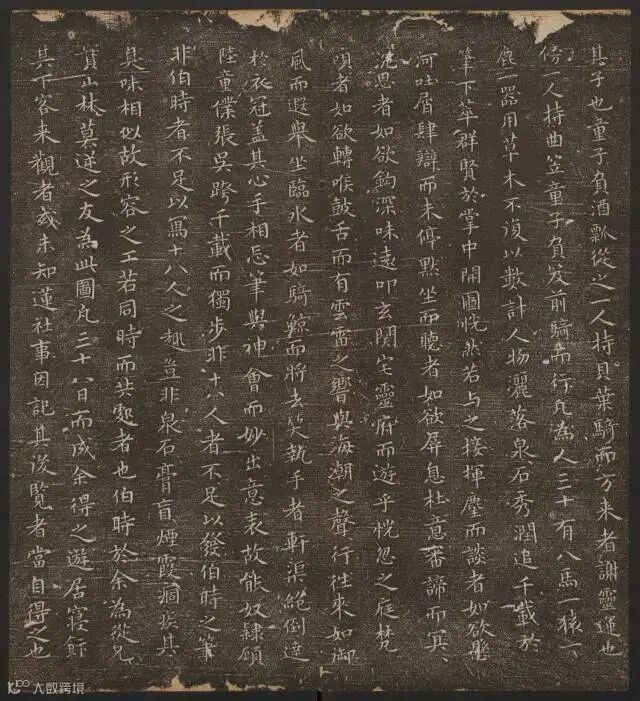 其子也童子負酒瓢從之一人持貝葉騎而方來者謝靈運也
傍一人持曲笠童子負笈前騎而行凡為人三十有八馬一猿一
鹿一器用草木不復以數計人物灑落泉石秀潤追千載於
筆下萃群賢於掌中開圖恍然若与之接揮麈而談者如欲懸
河吐屑肆辯而未停默坐而聽者如欲屏息杜意審諦而冥、
沉思者如欲鈎深味遠叩玄関宅靈府而遊乎恍忽之庭梵
唄者如欲轉喉鼓舌而有雲雷之響與海潮之聲行往來如御
風而遐舉坐臨水者如騎鯨而將去笑執手者軒渠絕倒達
於衣冠盖其心手相忘筆與神會而妙出意表故能奴隸顧
陸童僕張吳跨千載而獨步非十八人者不足以發伯時之筆
非伯時者不足以寫十八人之趣豈非泉石膏肓煙霞痼疾其
臭味相似故形容之工若同時而共處者也伯時於余為從兄
寔山林莫逆之友為此圖凡三十八日而成余得之遊居寢飰
其下客來觀者或未知蓮社事因記其後覽者當自得之也
大数跨境